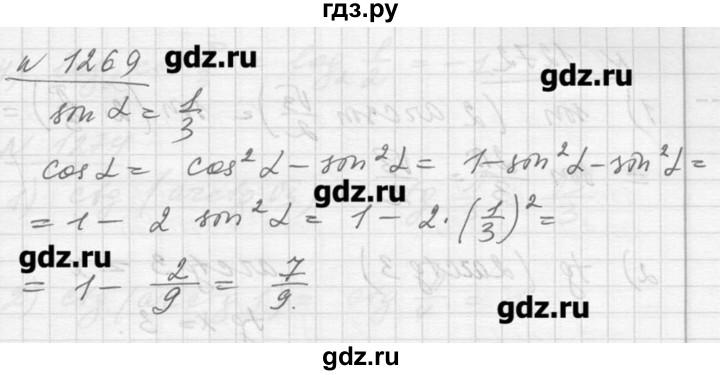 гдз.ру
N 1269 gdz.ru
gdz.ru
sin α = 1/3
cos α = cos² α − sin² α = 1 − sin² α − sin² α =
gdz.ru
= 1 − 2 sin² α = 1 − 2 · (1/3)² =
gdz.ru
= 1 − 2/9 = 7/9.
gdz.ru
gdz.ru